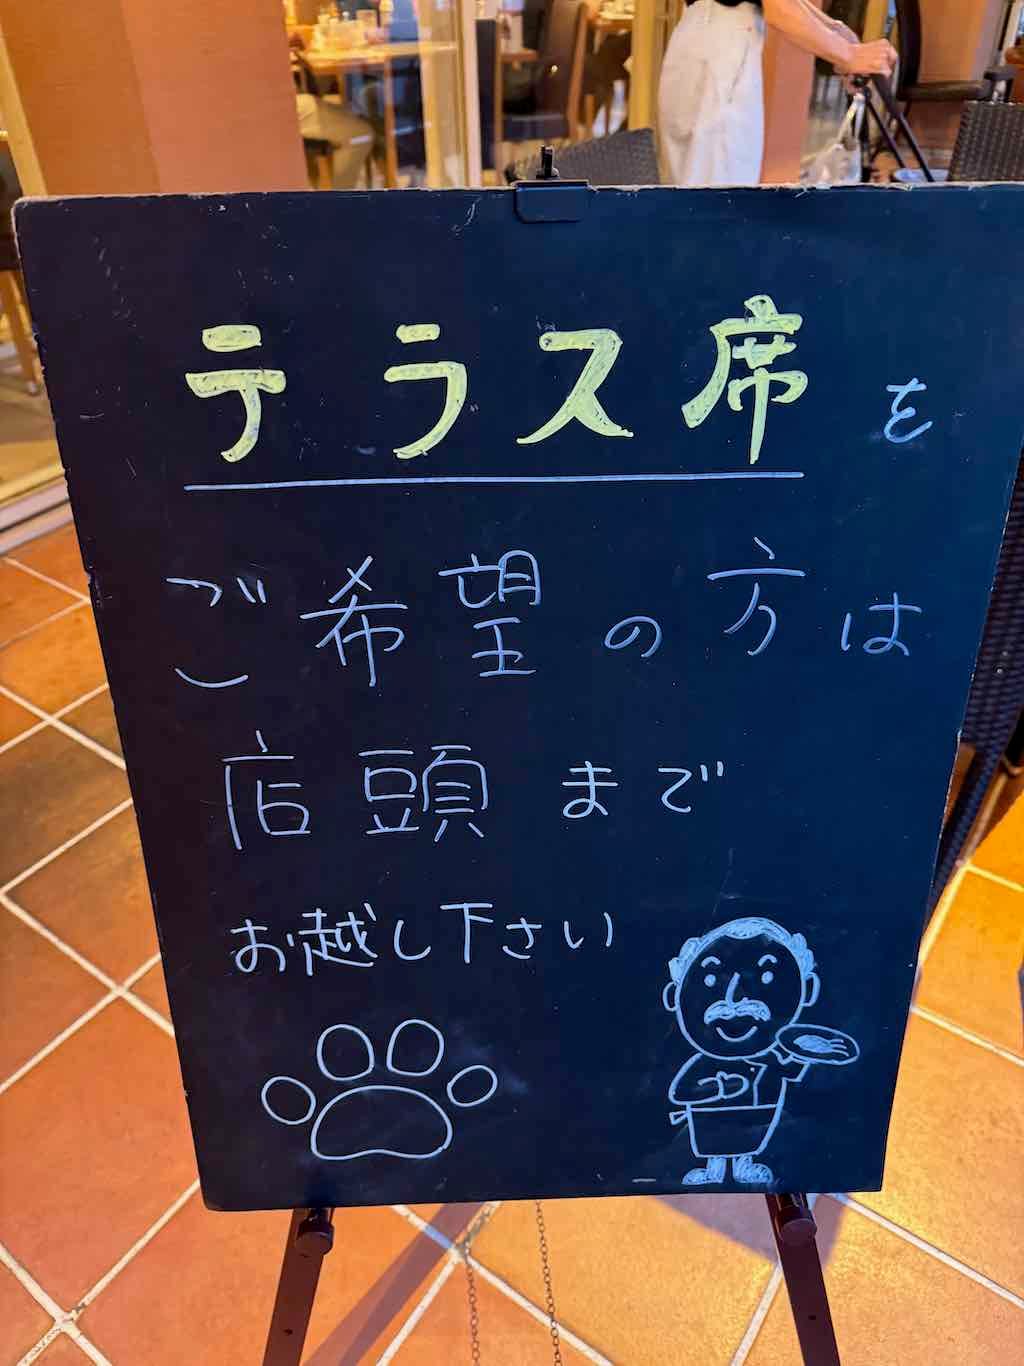 テラス席を
ご希望の方は
店頭まで
お越し下さい